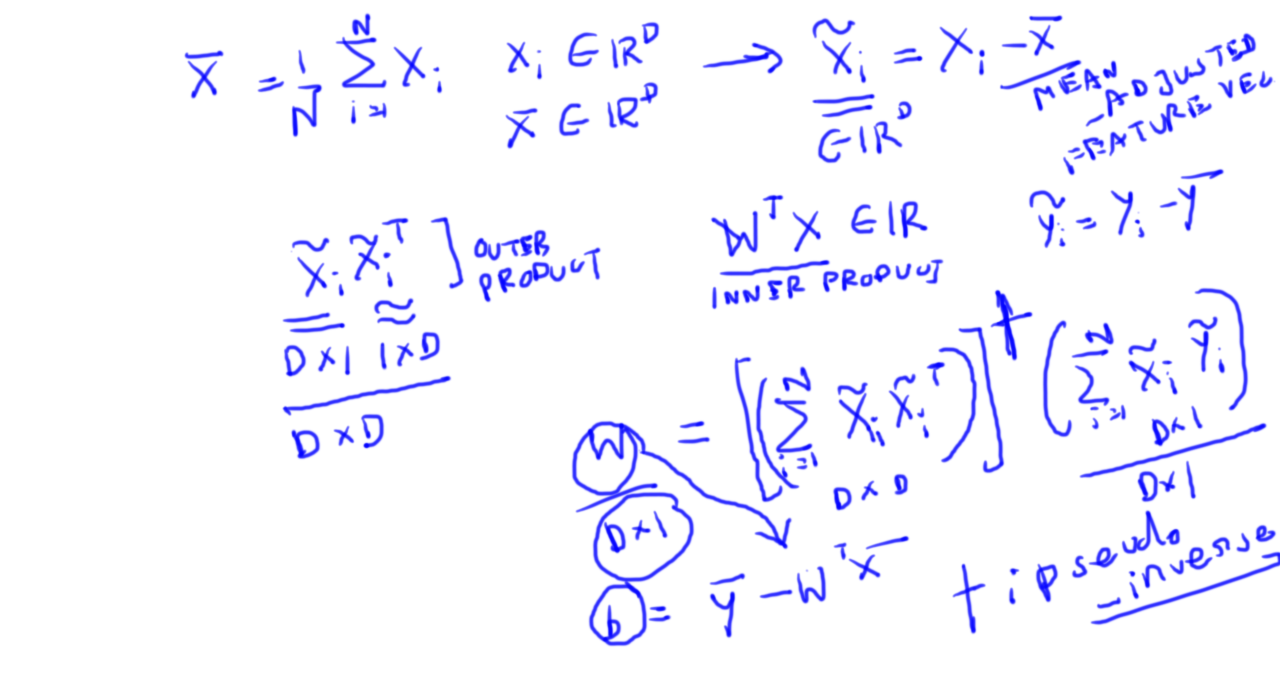 X̄ = 1/N ∑_{i=1}^{N} X_i   X_i ∈ ℝ^D → X̃_i = X_i - X̄
X̄ ∈ ℝ^D   ∈ ℝ^D   MEAN
- ADJUSTED
FEATURE VEC
X̃_i X̃_i^T ] OUTER
PRODUCT
W^T X ∈ ℝ   ỹ_i = y_i - ȳ
INNER PRODUCT
D×1 1×D
D×D
W = [(∑_{i=1}^{N} X̃_i X̃_i^T)]^† (∑_{i=1}^{N} X̃_i ỹ_i)
D×D   D×1
D×1   D×1
b = ȳ - W^T X̄   † : pseudo
- inverse